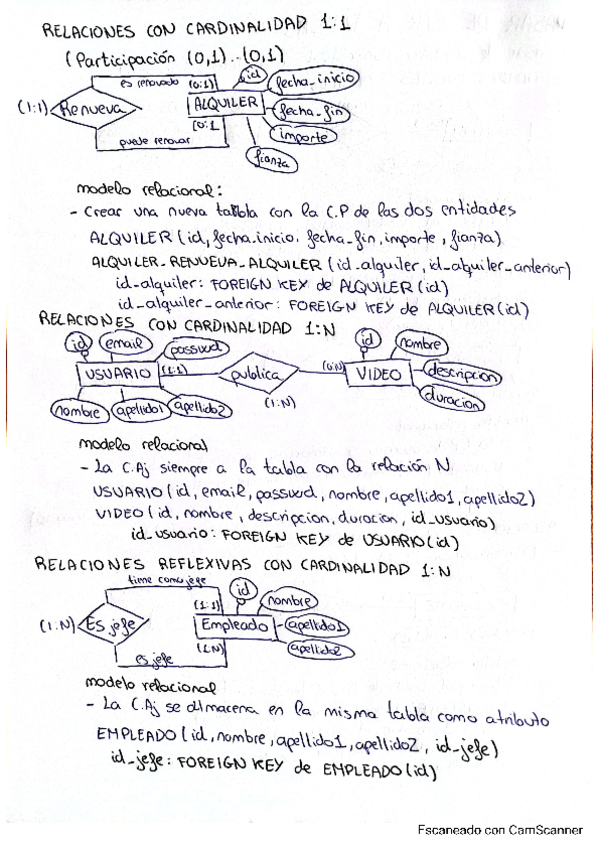 RELACIONES CON CARDINALIDAD 1:1
(Participación (0,1)..(0,1)
es renovado (0:1) id fecha_inicio
(1:1) Renueva ALQUILER fecha_fin
(0:1 importe
puede renovar
fianza
modelo relacional:
- Crear una nueva tabla con la C.P de las dos entidades
ALQUILER (id, fecha_inicio, fecha_fin, importe, fianza)
ALQUILER_RENUEVA_ALQUILER (id_alquiler, id_alquiler_anterior)
id_alquiler: FOREIGN KEY de ALQUILER (id)
id_alquiler_anterior: FOREIGN KEY de ALQUILER (id)
RELACIONES CON CARDINALIDAD 1:N
id email passwd id nombre
USUARIO (1:1) publica (0:N) VIDEO descripcion
(1:N) duracion
nombre apellido1 apellido2
modelo relacional
- La C.Aj siempre a la tabla con la relación N
USUARIO (id, email, passwd, nombre, apellido1, apellido2)
VIDEO (id, nombre, descripcion, duracion, id_usuario)
id_usuario: FOREIGN KEY de USUARIO (id)
RELACIONES REFLEXIVAS CON CARDINALIDAD 1:N
tiene como jefe id
(1:1) nombre
(1:N) Es jefe Empleado apellido1
(1:N) apellido2
es jefe
modelo relacional
- La C.Aj se almacena en la misma tabla como atributo
EMPLEADO (id, nombre, apellido1, apellido2, id_jefe)
id_jefe: FOREIGN KEY de EMPLEADO (id)
Escaneado con CamScanner